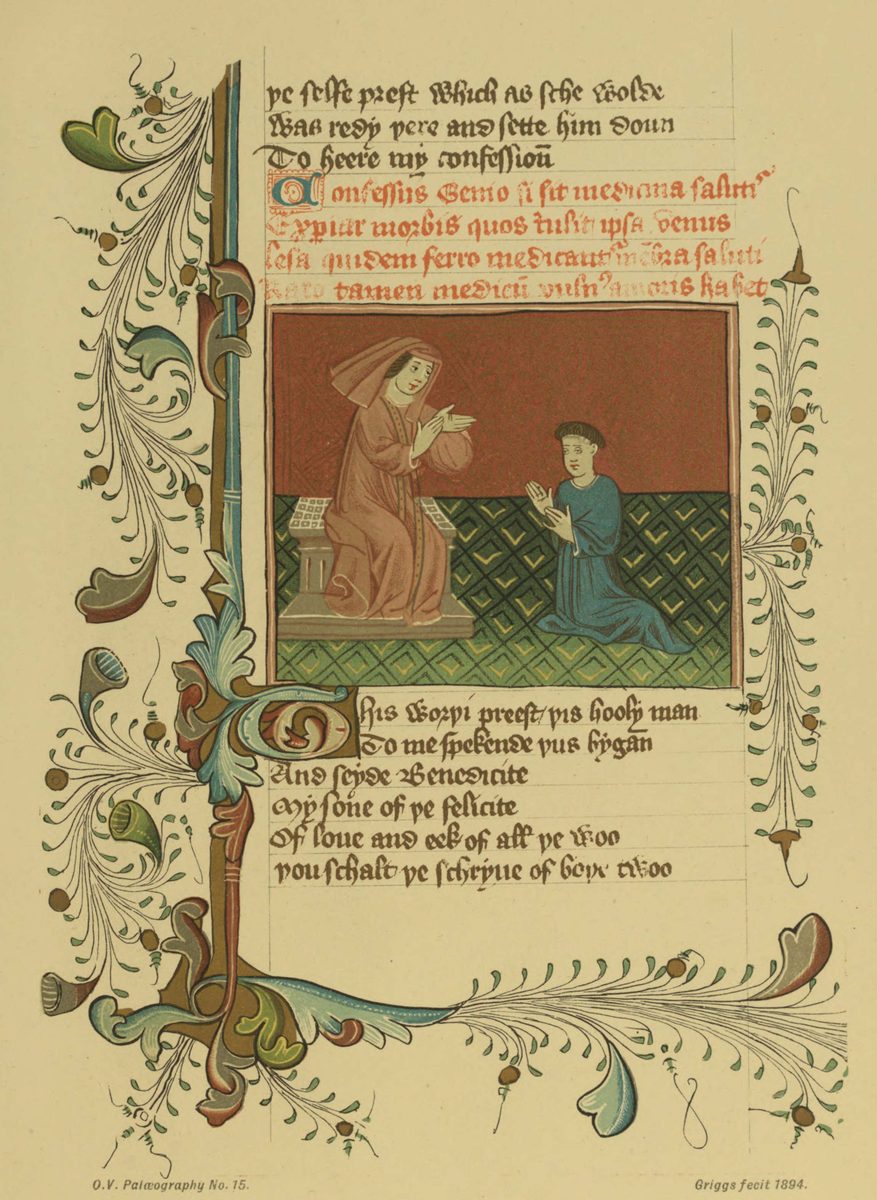 þe selfe prest which as sche wolde
Was redy þere and sette him doun
To heere my confessioū
Confessus Genio si sit medicina salutis
Experiar morbis quos tulit ipsa venus
lesa quidem ferro medicantʳ mēbra saluti
Raro tamen medicū vulnꝰ amoris habet
This worþi preest þis hooly man
To me spekende þus bygan
And seyde Benedicite
My sone of þe felicite
Of loue and eek of all þe woo
þou schalt þe schryue of boþe twoo
O.V. Palæography No. 15.
Griggs fecit 1894.